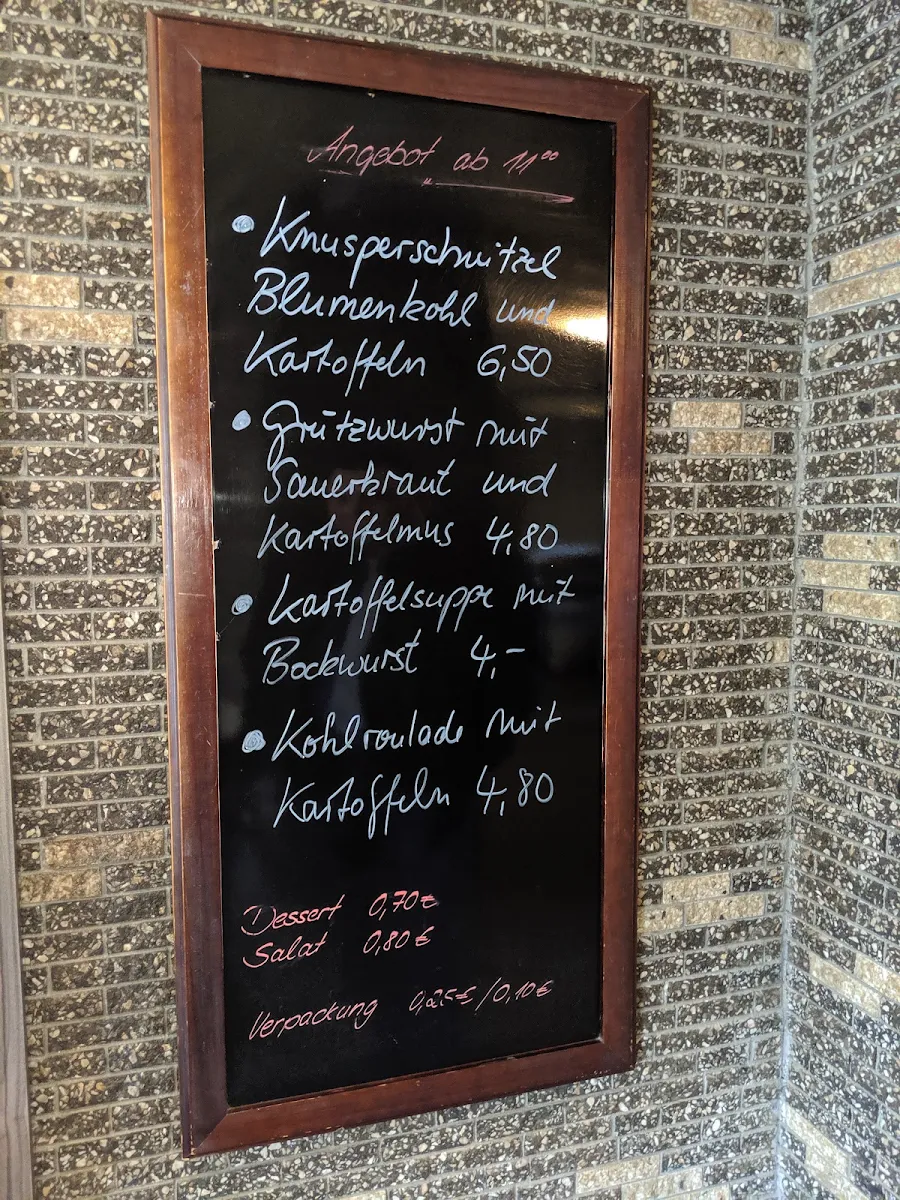 Angebot ab 11⁰⁰
• Knusperschnitzel
Blumenkohl und
Kartoffeln 6,50
• Grützwurst mit
Sauerkraut und
Kartoffelmus 4,80
• Kartoffelsuppe mit
Bockwurst 4,-
• Kohlroulade mit
Kartoffeln 4,80
Dessert 0,70€
Salat 0,80€
Verpackung 0,25€/0,10€